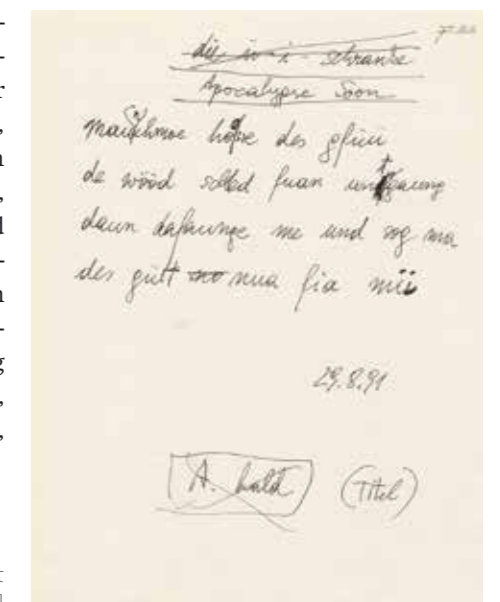 die ü-i-schranke
Apocalypse Soon
manchmoe hobe des gfüü
de wööd sded fuan untagaung
daun dafaunge me und sog ma
des güt no nua fia mii
29.8.91
A. bald (Titel)